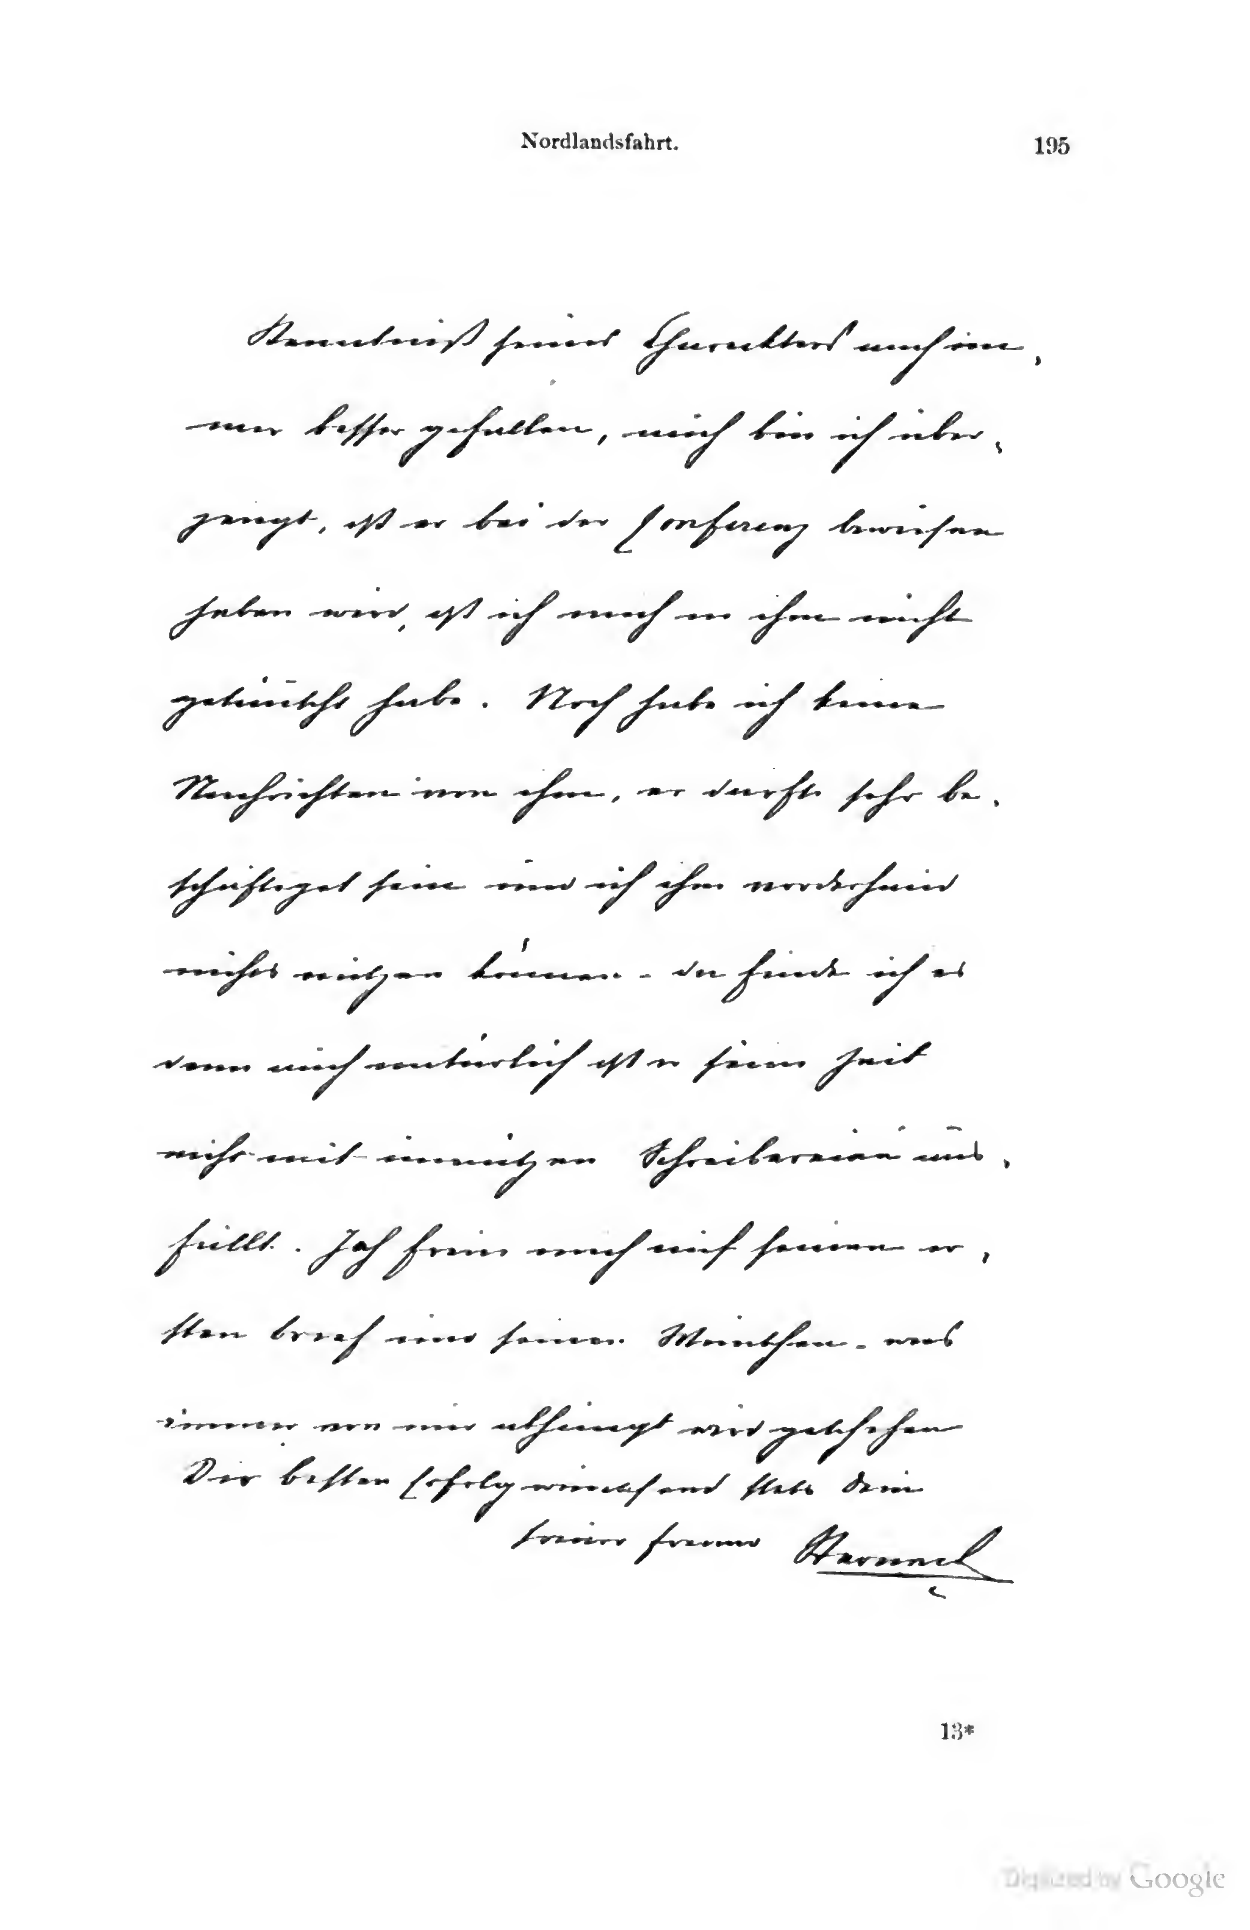 Nordlandsfahrt. 195
Kenntniß seines Charakters auch im,
mer besser gefallen, auch bin ich über,
zeugt, daß er bei der Conferenz bewiesen
haben wird, daß ich mich in ihm nicht
getäuscht habe. Noch habe ich keine
Nachrichten von ihm, er dürfte sehr be,
schäftiget sein und ich ihm vorderhand
nichts nützen können - da finde ich es
denn auch natürlich daß er seine Zeit
nicht mit unnützen Schreibereien aus,
füllt. Ich freue mich auf seinen er,
sten Brief und seinen Wünschen - was
immer von mir abhängt wird geschehen
Dir besten Erfolg wünschend stets Dein
treuer Freund Sterneck
13*
Digitized by Google